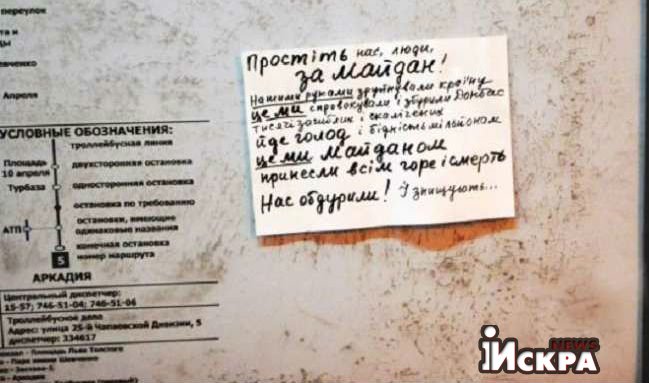 переулок
та и
Апреля
УСЛОВНЫЕ ОБОЗНАЧЕНИЯ:
троллейбусная линия
Площадь
10 апреля
двухсторонняя остановка
Турбаза
односторонняя остановка
остановка по требованию
АТП
остановки, имеющие
одинаковые названия
конечная остановка
5
номер маршрута
АРКАДИЯ
Центральный диспетчер:
15-57; 746-51-04; 746-51-06
Троллейбусное депо
Адрес: улица 25-й Чапаевской Дивизии, 5
диспетчер: 334617
Площадь Льва Толстого
Простіть нас, люди,
за Майдан!
Нашими руками зруйнували країну
це ми спровокували і збурили Донбас
тисячі загиблих і скалічених
йде голод і бідність мільйонам
це ми Майданом
принесли всім горе і смерть
Нас обдурили! І знищують...
ИСКРА
NEWS